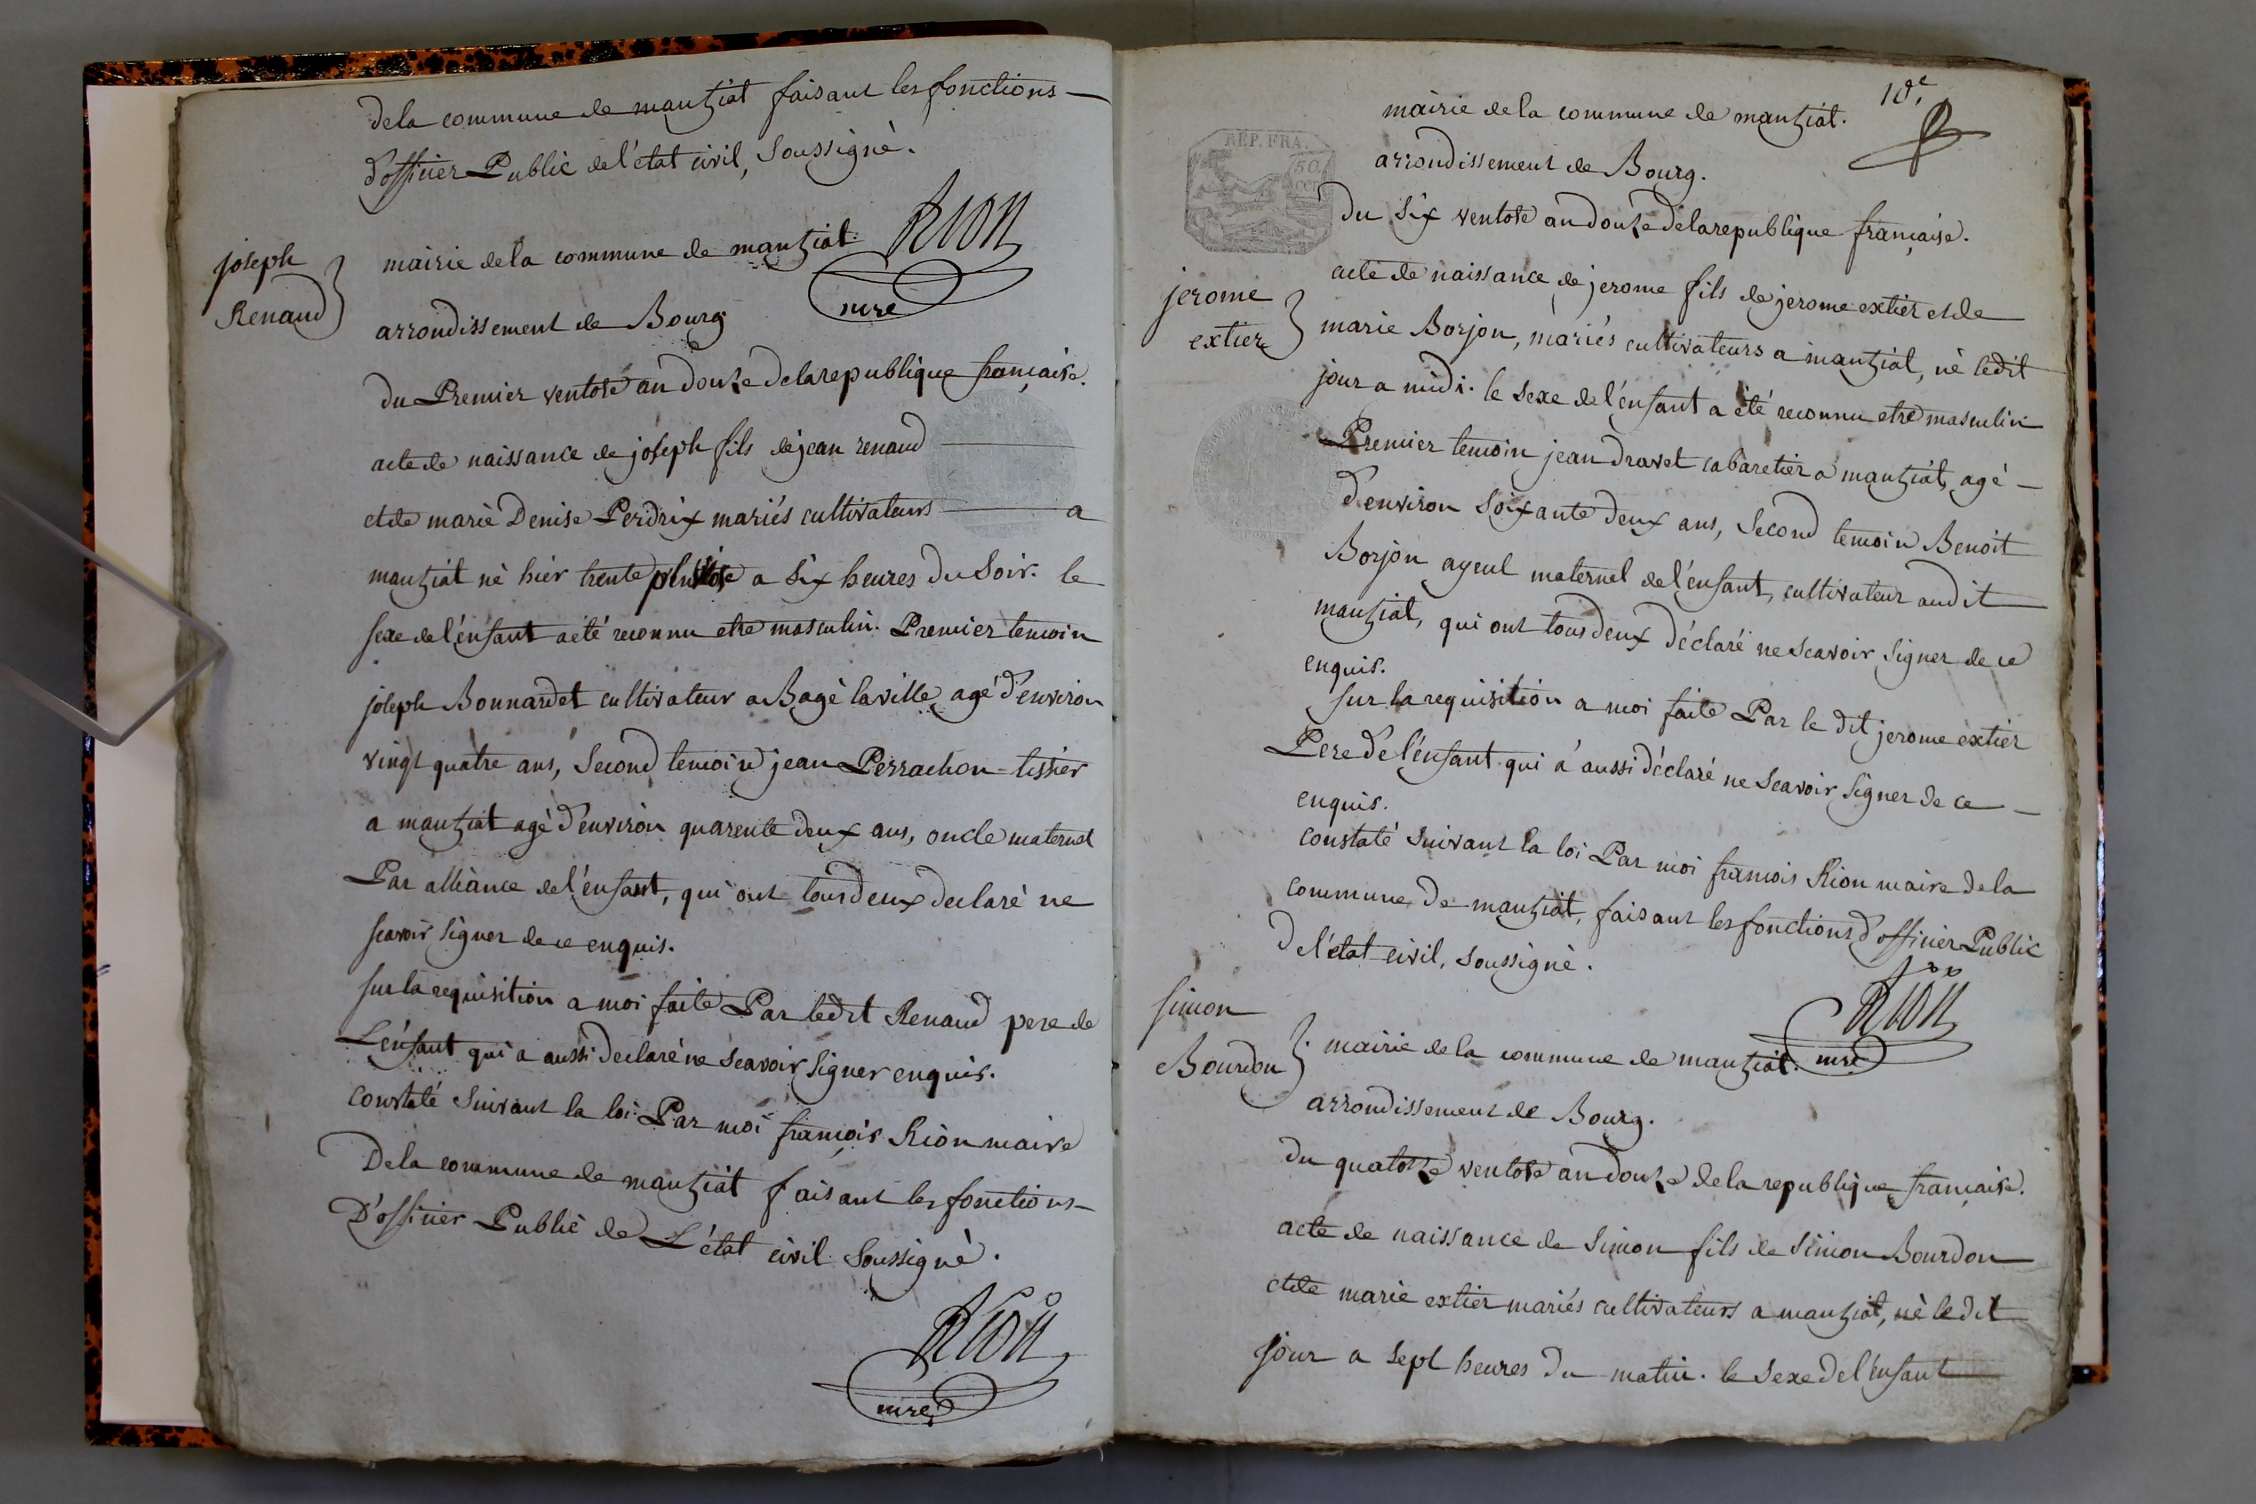 dela commune de mantziat faisant les fonctions
d'officier Public de l'etat civil, soussigné.
Rion
mre
joseph
Renaud
mairie dela commune de mantziat
arrondissement de Bourg
du Premier ventose an douze delarepublique française.
acte de naissance de joseph fils dejean renaud
etde marie Denise Perdrix mariés cultivateurs a
mantziat né hier trente pluviose a six heures du soir. le
sexe del'énfant aété reconnu etre masculin. Premier temoin
joseph Bonnardet cultivateur a Bagé laville, agé d'environ
vingt quatre ans, second temoin jean Perrachon tissier
a mantziat agé d'environ quarente deux ans, oncle maternel
Par alliance de l'énfant, qui ont tousdeux declaré ne
scavoir signer de ce enquis.
sur la requisition a moi faite Par ledit Renaud pere de
L'énfant qui a aussi declaré ne scavoir signer enquis.
constaté suivant la loi Par moi françois Rion maire
Dela commune de mantziat faisant les fonctions
D'officier Public de L'état civil soussigné.
Rion
mre
10e.
REP. FRA.
50
mairie de la commune de mantziat.
arrondissement de Bourg.
du six ventose an douze delarepublique française.
jerome
extier
acte de naissance de jerome fils de jerome extier etde
marie Borjon, mariés cultivateurs a mantziat, né ledit
jour a midi. le sexe de l'énfant a été reconnu etre masculin
Premier temoin jean dravet cabaretier a mantziat, agé
d'environ soixante deux ans, second temoin Benoit
Borjon ayeul maternel de l'énfant, cultivateur audit
mantziat, qui ont tous deux déclaré ne scavoir signer de ce
enquis.
sur la requisition a moi faite Par le dit jerome extier
Pere de l'énfant qui a aussi déclaré ne scavoir signer de ce
enquis.
constaté suivant la loi Par moi francois Rion maire de la
commune de mantziat, faisant les fonctions d'officier Public
de l'état civil, soussigné.
Rion
mre
simon
Bourdon
mairie de la commune de mantziat.
arrondissement de Bourg.
du quatorze ventose an douze dela republique française.
acte de naissance de simon fils de simon Bourdon
etde marie extier mariés cultivateurs a mantziat, né le dit
jour a sept heures du matin. le sexe de l'énfant